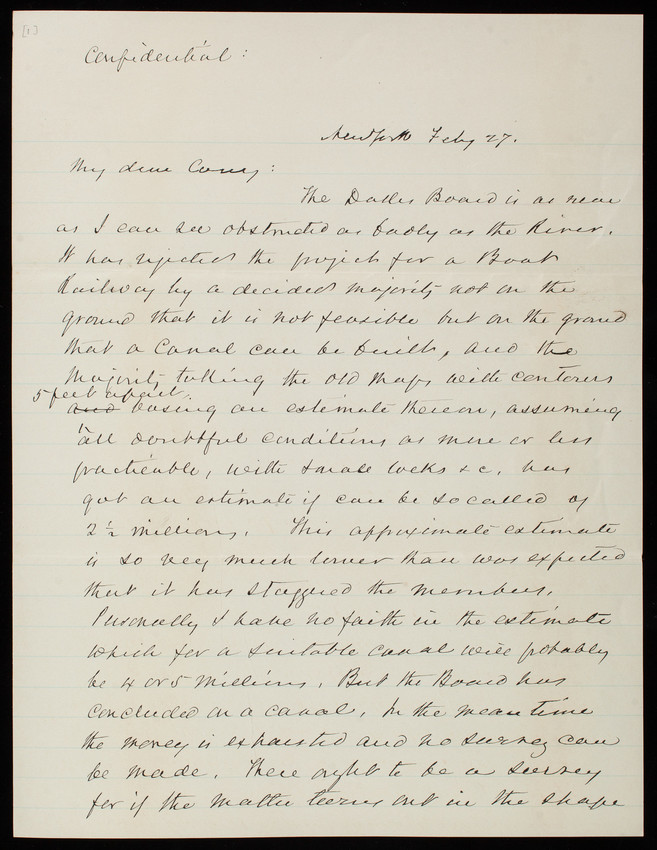 [1]
Confidential:
New York Feby 27.
My dear Casey:
The Dalles Board is as near
as I can see obstructed as badly as the River.
It has rejected the project for a Boat
Railway by a decided majority not on the
ground that it is not feasible but on the ground
that a Canal can be built, and the
Majority, taking the old Maps with contours
5 feet apart.
and basing an estimate thereon, assuming
all doubtful conditions as more or less
practicable, with small locks &c, has
got an estimate if can be so called of
2 1/2 millions. This approximate estimate
is so very much lower than was expected
that it has staggered the members.
Personally I have no faith in the estimate
which for a suitable canal will probably
be 4 or 5 millions. But the Board has
concluded on a canal. In the meantime
the money is exhausted and no survey can
be made. There ought to be a survey
for if the matter turns out in the shape